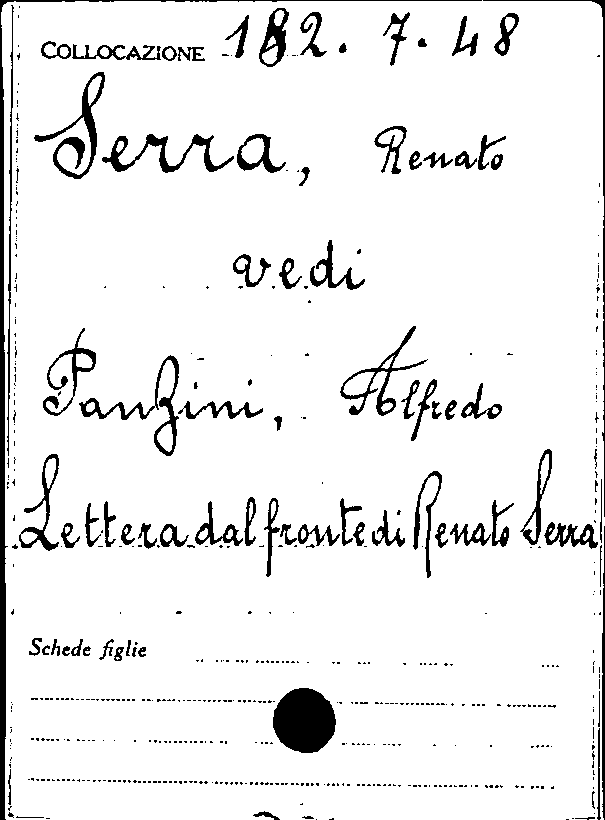 COLLOCAZIONE 182.7.48
Serra, Renato
vedi
Panzini, Alfredo
Lettera dal fronte di Renato Serra
Schede figlie